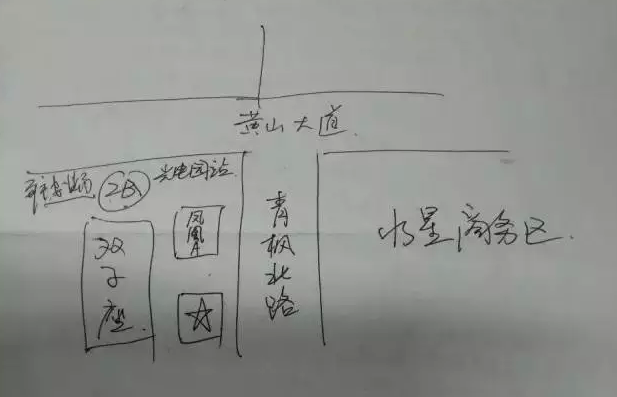 黄山大道.
2B
光电园站
凤凰A
双子座.
青枫北路
水星商务区.